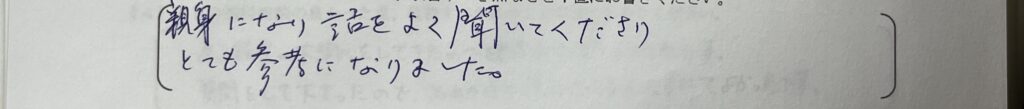 親身になり話をよく聞いてくださり
とても参考になりました。